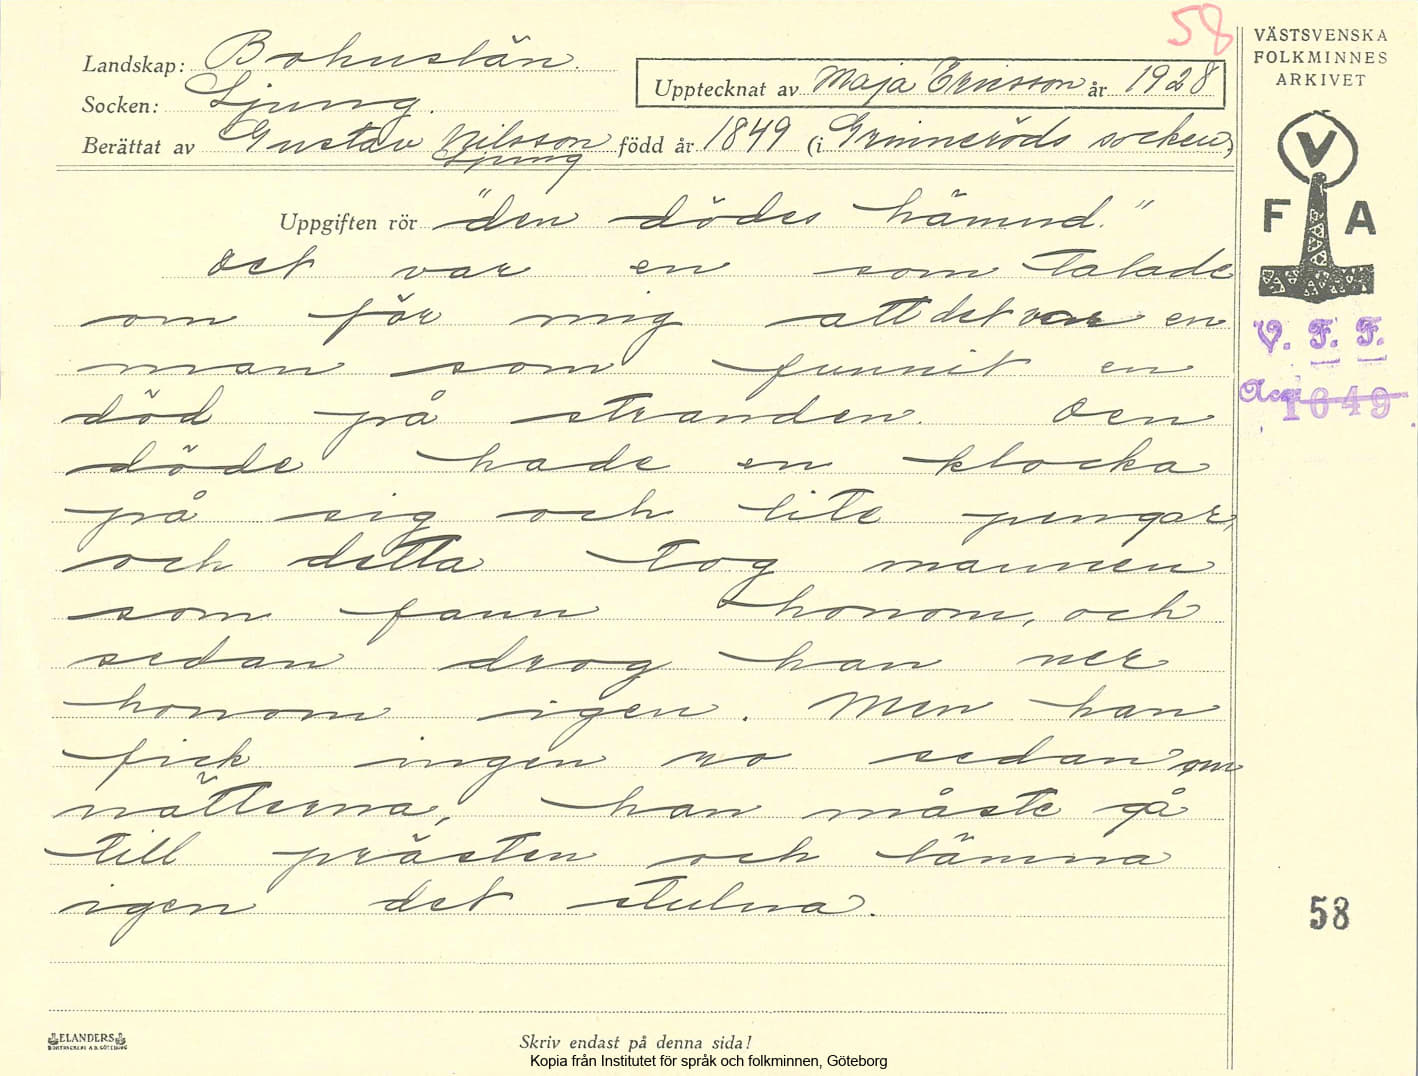 58
Landskap: Bohuslän.
Socken: Ljung.
Upptecknat av Maja Ericsson år 1928
Berättat av Gustav Nilsson född år 1849 (i Grinneröds socken)
Ljung
Uppgiften rör "den dödes hämnd."
Det var en som talade
om för mig att det var en
man som funnit en
död på stranden. Den
döde hade en klocka
på sig och lite pengar,
och detta tog mannen
som fann honom, och
sedan drog han ner
honom igen. Men han
fick ingen ro sedan om
nätterna, han måste gå
till prästen och lämna
igen det stulna.
VÄSTSVENSKA
FOLKMINNES
ARKIVET
V
F A
V. F. F.
Acc. 1649
58
ELANDERS
Skriv endast på denna sida!
Kopia från Institutet för språk och folkminnen, Göteborg